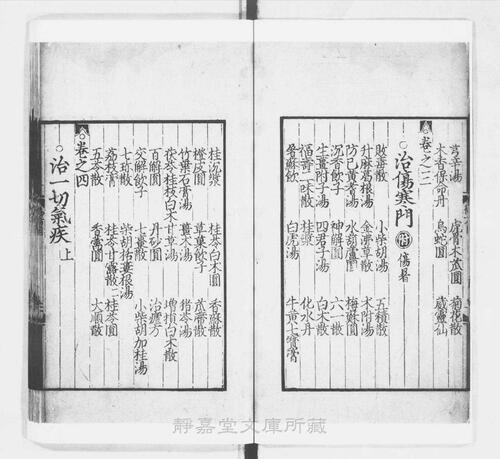 虎骨木瓜圓 菊花散
木香保命丹 烏蛇圓 威靈仙
卷之三
治傷寒門 附 傷暑
敗毒散 小柴胡湯 五積散
升麻葛根湯 金沸草散 木附湯
防己黃耆湯 水葫蘆圓 梅蘇圓
沉香飲子 神解圓 六一散
生薑附子湯 四君子湯 白木散
一味散 桂漿 化水丹
白虎湯 牛黃七寶膏
桂沉漿 桂苓白木圓 香酥散
橙皮圓 草菓飲子 蒂散
竹葉石膏湯 薑木湯 猪苓湯
茯苓桂枝白木甘草湯 增損白木散
百解圓 丹砂圓 治瘧方
交解飲子 七棗散 小柴胡加桂湯
七珍散 柴胡括蔞根湯
荔枝膏 桂苓甘露散二 桂苓圓
五苓散 香薷圓 大順散
卷之四
治一切氣疾 上
靜嘉堂文庫所藏